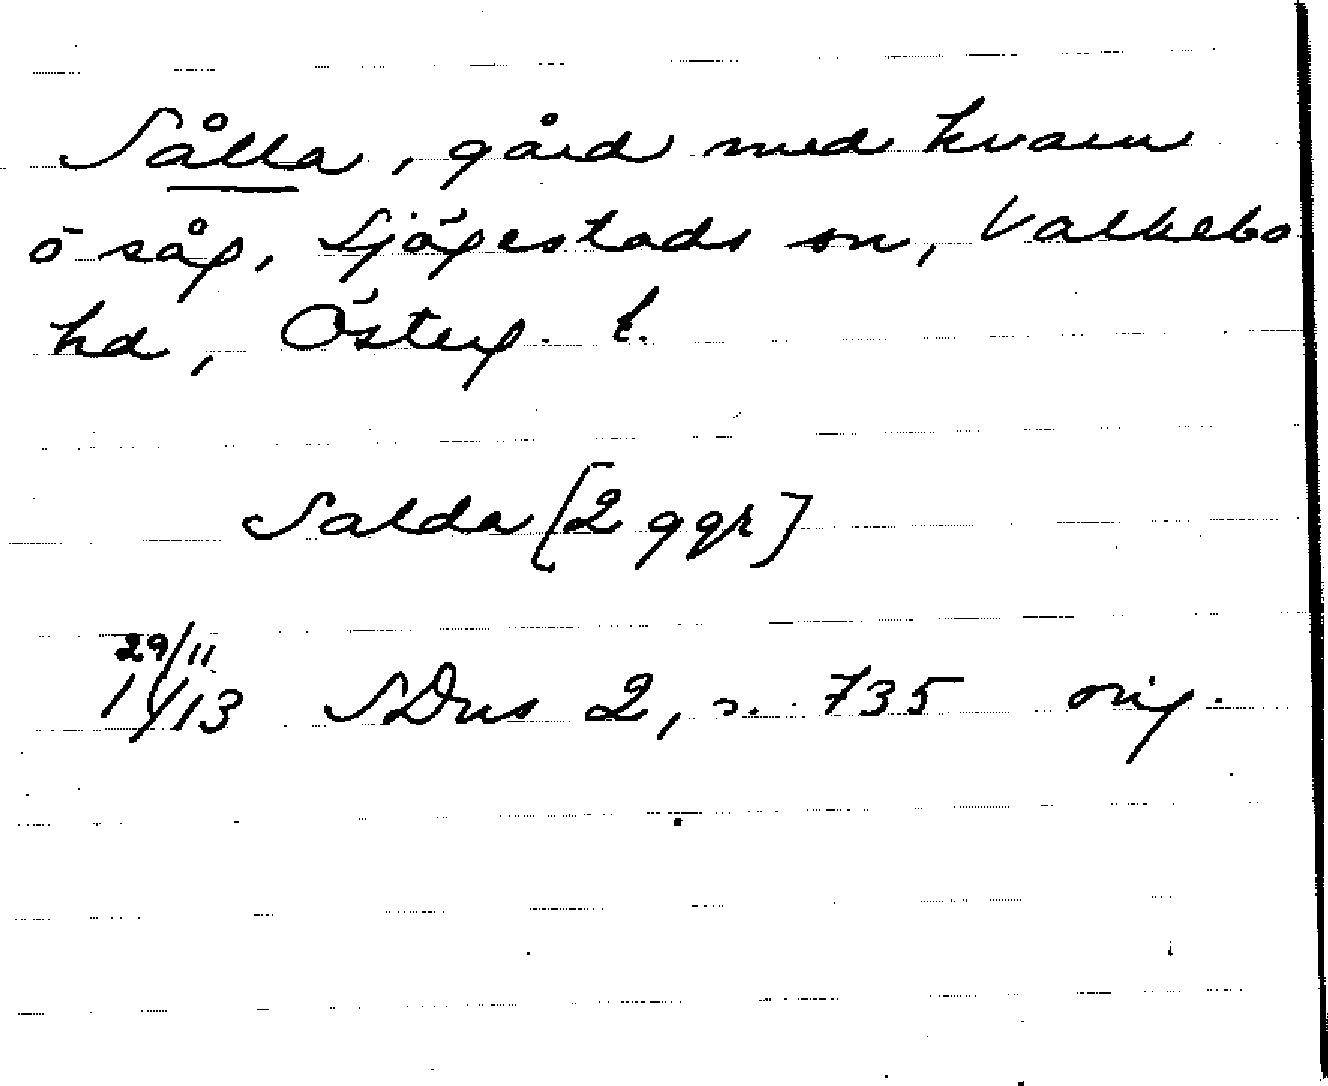 Sålla, gård med kvarn
o såg, Sjögestads sn, Valkebo
hd, Österg. l.
Salda [2 ggr]
29/11
14/13 SDns 2, s. 735 orig.